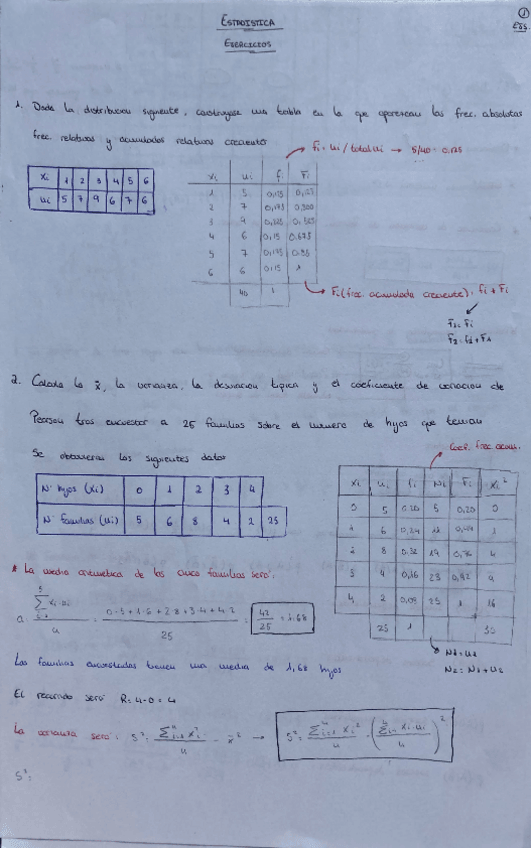 ①
ESTADISTICA
EJERCICIOS
1. Dada la distribucion siguiente, constrúyase una tabla en la que aparezcan las frec. absolutas
frec. relativas y acumulados relativas crecientes
fi = ui / total ui → 5/40 = 0.125
xi 1 2 3 4 5 6
ui 5 7 9 6 7 6
xi ui fi Fi
1 5 0,125
2 7 0,175 0,300
3 9 0,225
4 6 0,15 0.675
5 7 0,175
6 6 0,15 1
40 1
Fi (frec. acumulada creciente). fi + Fi
F1 = Fi
2. Calcula la x̄, la varianza, la desviacion tipica y el coeficiente de variacion de
Pearson tras encuestar a 25 familias sobre el numero de hijos que tenian
Se obtuvieron los siguientes datos
Coef. frec acum.
N° hijos (xi) 0 1 2 3 4
N° familias (ui) 5 6 8 4 2 25
xi ui fi Ni Fi xi²
0 5 0,20 5 0,20 0
1 6 0,24 1
2 8 0,32 19 0,76 4
3 4 0,16 23 0,92 9
4 2 0,08 25 1 16
25 1
N1 = u1
N2 = N1 + u2
* La media aritmetica de las cinco familias será:
0·5 + 1·6 + 2·8 + 3·4 + 4·2 / 25 = 42/25 = 1.68
Las familias encuestadas tienen una media de 1,68 hijos
El recorrido será R = 4 - 0 = 4
La varianza será: S² = Σ xi² / u - x̄² → S² = Σ xi² / u - (Σ xi·ui / u)²
S²: